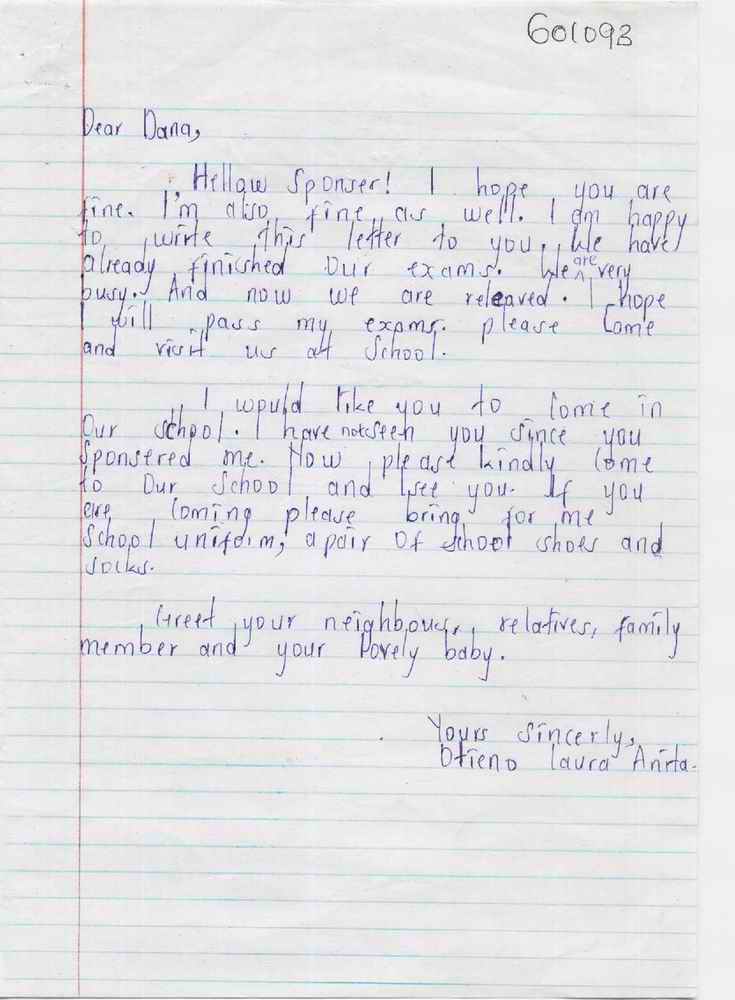 601093
Dear Dana,
Hellow Sponser! I hope you are
fine. I'm also fine as well. I am happy
to write this letter to you. We have
already finished our exams. We are very
busy. And now we are releaved. I hope
I will pass my exams. please come
and visit us at School.
I would like you to come in
Our school. I have not seen you since you
Sponsered me. Now please kindly come
to Our School and I see you. If you
are coming please bring for me
School uniform, a pair of school shoes and
socks.
Greet your neighbours, relatives, family
member and your lovely baby.
Yours sincerly,
Otieno Laura Anita.